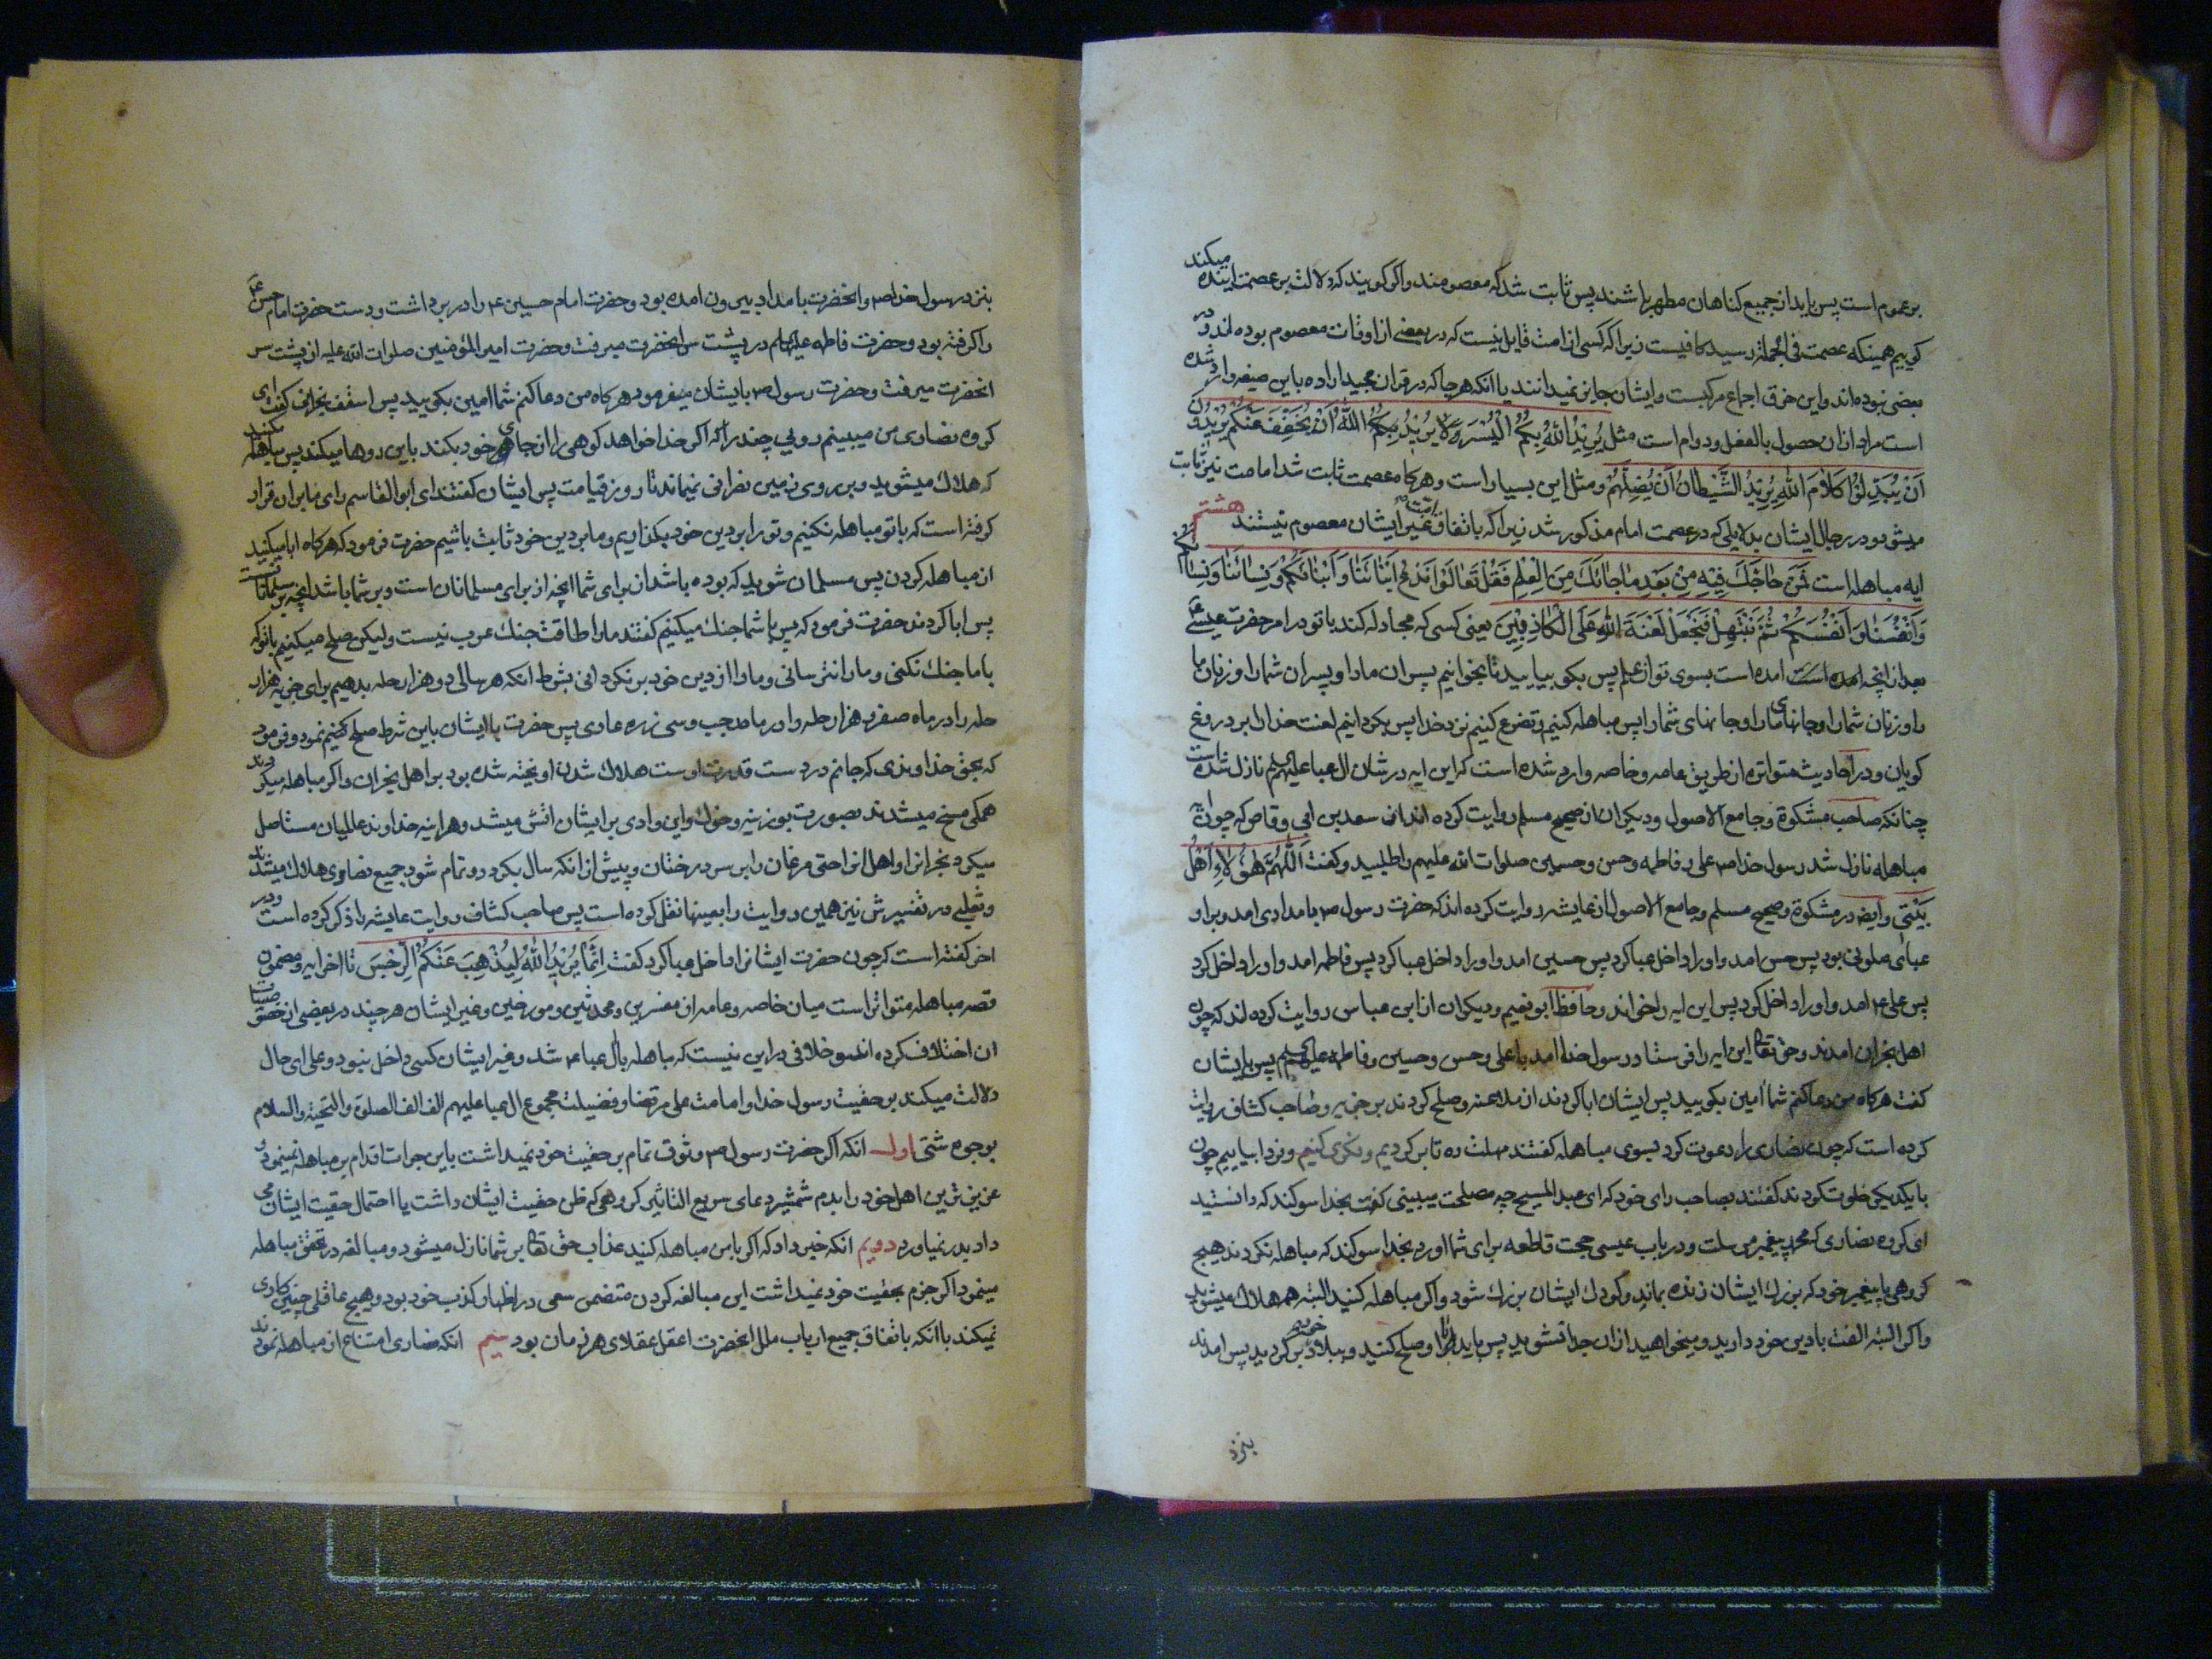 بر عموم است پس باید از جمیع کناهان مطهر باشند پس ثابت شد که معصومند و اکر کویند که دلالت بر عصمت اینده میکند
کوییم همینکه عصمت فی الجمله رسید کافیست زیرا که کسی از امت قایل نیست که در بعضی از اوقات معصوم بوده اند و در
بعضی نبوده اند و این خرق اجماع مرکبست و ایشان جایز نمیدانند با انکه هر جا که در قران مجید اراده باین صیغه وارد شده
است مراد از ان حصول بالفعل و دوام است مثل یُرِیْدُ اللّٰهُ بِکُمُ الْیُسْرَ وَلَا یُرِیْدُ بِکُمُ اللّٰهُ اَنْ یُخَفِّفَ عَنْکُمْ یُرِیْدُوْنَ
اَنْ یُبَدِّلُوْا کَلَامَ اللّٰهِ یُرِیْدُ الشَّیْطَانُ اَنْ یُضِلَّهُمْ و مثل این بسیار است و هر کاه عصمت ثابت شد امامت نیز ثابت
میشود در بر حال ایشان بدلایلی که در عصمت امام مذکور شد زیرا که باتفاق امت غیر ایشان معصوم نیستند هشتم
ایه مباهله است فَمَنْ حَاجَّكَ فِیْهِ مِنْ بَعْدِ مَا جَائَكَ مِنَ الْعِلْمِ فَقُلْ تَعَالَوْا نَدْعُ اَبْنَائَنَا وَ اَبْنَائَکُمْ وَ نِسَائَنَا وَ نِسَائَکُمْ
وَ اَنْفُسَنَا وَ اَنْفُسَکُمْ ثُمَّ نَبْتَهِلْ فَنَجْعَلْ لَعْنَةَ اللّٰهِ عَلَی الْکَاذِبِیْنَ یعنی کسی که مجادله کند با تو در امر حضرت عیسی ع
بعد از انچه امده است بسوی تو از علم پس بکو بیایید تا بخوانیم پسران ما را و پسران شما را و زنان ما
را و زنان شما را و جانهای ما را و جانهای شما را پس مباهله کنیم و تضرع کنیم نزد خدا پس بکردانیم لعنت خدا را بر دروغ
کویان و در احادیث متواتره از طریق عامه و خاصه وارد شده است که این ایه در شان ال عبا علیهم نازل شده است
چنانکه صاحب مشکوة و جامع الاصول و دیکران از صحیح مسلم روایت کرده اند از سعد بن ابی وقاص که چون ایه
مباهله نازل شد رسول خدا ص علی و فاطمه و حسن و حسین صلوات الله علیهم را طلبید و کفت اَللّٰهُمَّ هٰؤُلَاءِ اَهْلُ
بَیْتِی و ایضا در مشکوة و صحیح مسلم و جامع الاصول از عایشه روایت کرده اند که حضرت رسول ص بامدادی امد و بر او
عبای ملونی بود پس حسن امد و او را داخل عبا کرد پس حسین امد و او را داخل عبا کرد پس فاطمه امد و او را داخل کرد
پس علی ع امد و او را داخل کرد پس این ایه را خواند و حافظ ابو نعیم و دیکران از ابن عباس روایت کرده اند که چون
اهل نجران امدند و حق تعالی این ایه را فرستاد رسول خدا امد با علی و حسن و حسین و فاطمه علیهم پس بایشان
کفت هر کاه من دعا کنم شما امین بکویید پس ایشان ابا کردند از ملاعنه و صلح کردند بر جزیه و صاحب کشاف روایت
کرده است که چون نصاری را دعوت کرد بسوی مباهله کفتند مهلت ده تا بر کردیم و فکری کنیم و فردا بیاییم چون
با یکدیکر خلوت کردند کفتند بصاحب رای خود که ای عبد المسیح چه مصلحت میبینی کفت بخدا سوکند که دانستید
ای کروه نصاری که محمد پیغمبر مرسلست و در باب عیسی حجت قاطعه برای شما اورد بخدا سوکند که مباهله نکردند هیچ
کروهی با پیغمبر خود که بزرك ایشان زنده بماند و کودك ایشان بزرك شود و اکر مباهله کنید البته همه هلاك میشوید
و اکر البته الفت با دین خود دارید و میخواهید از ان جدا نشوید پس باید با او صلح کنید و ببلاد خود بر کردید پس امدند
بنزد
بنزد رسول خدا ص و انحضرت بامداد بیرون امده بود و حضرت امام حسین ع را در بر داشت و دست حضرت امام حسن ع
را کرفته بود و حضرت فاطمه علیها در پشت سر انحضرت میرفت و حضرت امیر المؤمنین صلوات الله علیه از پشت سر
انحضرت میرفت و حضرت رسول ص بایشان میفرمود هر کاه من دعا کنم شما امین بکویید پس اسقف نجران کفت ای
کروه نصاری من میبینم رویی چند را که اکر خدا خواهد کوهی را از جای خود بکند باین روها میکند پس مباهله مکنید
که هلاك میشوید و بر روی زمین نصرانی نمیماند تا روز قیامت پس ایشان کفتند ای ابو القاسم رای ما بر ان قرار
کرفته است که با تو مباهله نکنیم و تو را بر دین خود بکذاریم و ما بر دین خود ثابت باشیم حضرت فرمود که هر کاه ابا میکنید
از مباهله کردن پس مسلمان شوید که بوده باشد از برای شما انچه از برای مسلمانان است و بر شما باشد انچه بر مسلمانانست
پس ابا کردند حضرت فرمود که پس با شما جنك میکنیم کفتند ما را طاقت جنك عرب نیست و لیکن صلح میکنیم با تو که
با ما جنك نکنی و ما را نترسانی و ما را از دین خود بر نکردانی بشرط انکه هر سالی دو هزار حله بدهیم برای جزیه هزار
حله را در ماه صفر و هزار حله را در ماه رجب و سی زره عادی پس حضرت با ایشان باین شرط صلح نمود و فرمود
که بحق خداوندی که جانم در دست قدرت اوست هلاك شدن اویخته شده بود بر اهل نجران و اکر مباهله میکردند
همکی مسخ میشدند بصورت بوزینه و خوك و این وادی بر ایشان اتش میشد و هراینه خداوند عالمیان مستاصل
میکرد نجران و اهل انرا حتی مرغان را بر سر درختان و پیش از انکه سال بکردد و تمام شود جمیع نصاری هلاك میشدند
و ثعلبی در تفسیرش نیز همین روایت را بعینها نقل کرده است پس صاحب کشاف روایت عایشه را ذکر کرده است و در
اخر کفته است که چون حضرت ایشانرا داخل عبا کرد کفت اِنَّمَا یُرِیْدُ اللّٰهُ لِیُذْهِبَ عَنْکُمُ الرِّجْسَ تا اخر ایه و مضمون
قصه مباهله متواتر است میان خاصه و عامه از مفسرین و محدثین و مورخین و غیر ایشان هر چند در بعضی از خصوصیات
ان اختلاف کرده اند و خلافی در این نیست که مباهله بال عبا شد و غیر ایشان کسی داخل نبود و علی ای حال
دلالت میکند بر حقیت رسول خدا و امامت علی مرتضا و فضیلت مجموع ال عبا علیهم الف الف الصلوة و التحیة و السلام
بوجوه شتی اول انکه اکر حضرت رسول ص وثوق تمام بر حقیت خود نمیداشت باین جرات اقدام بر مباهله نمینمود و
عزیزترین اهل خود را بدم شمشیر دعای سریع التاثیر کروهی که ظن حقیت ایشان داشت یا احتمال حقیت ایشان می
داد در نمیاورد دویم انکه خبر داد که اکر با من مباهله کنید عذاب حق تعالی بر شما نازل میشود و مبالغه در تحقق مباهله
مینمود اکر جزم بحقیت خود نمیداشت این مبالغه کردن متضمن سعی در اظهار کذب خود بود و هیچ عاقلی چنین کاری
نمیکند با انکه باتفاق جمیع ارباب ملل انحضرت اعقل عقلای هر زمان بود سیم انکه نصاری امتناع از مباهله نمودند